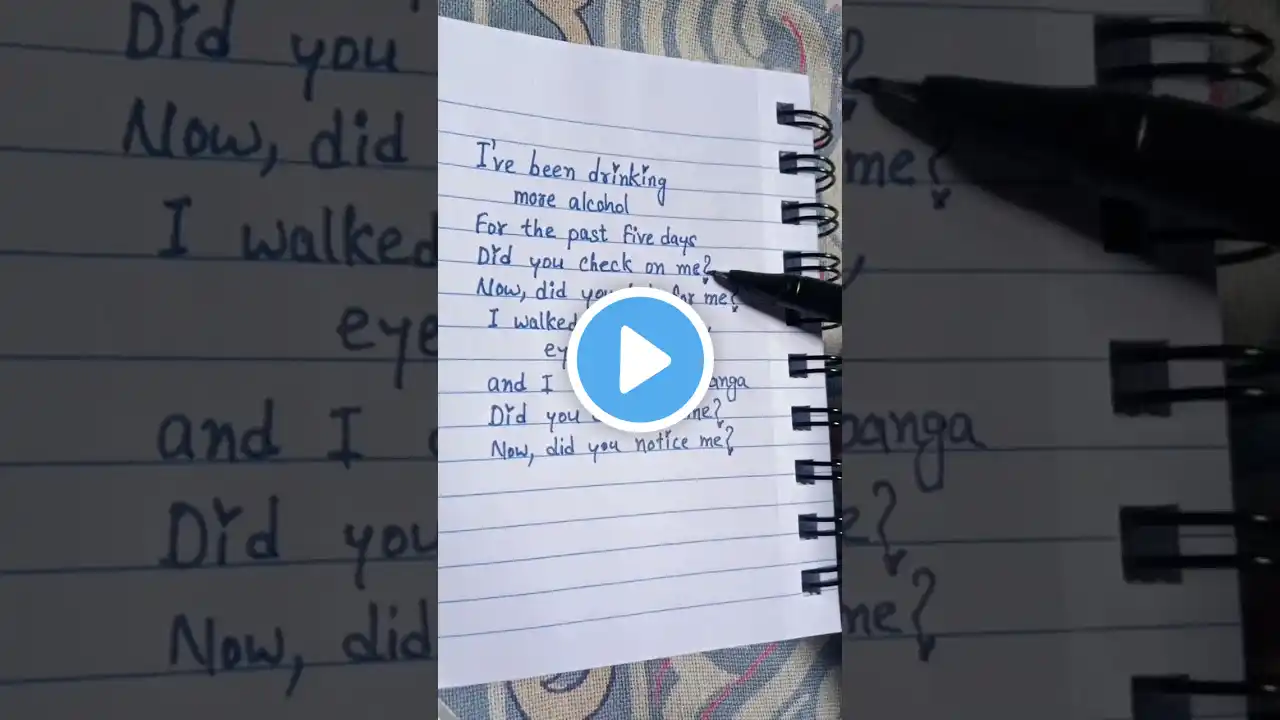 I've been drinking
more alcohol
For the past five days
Did you check on me?
Now, did you for me?
I walked
eye
and I anga
Did you me?
Now, did you notice me?